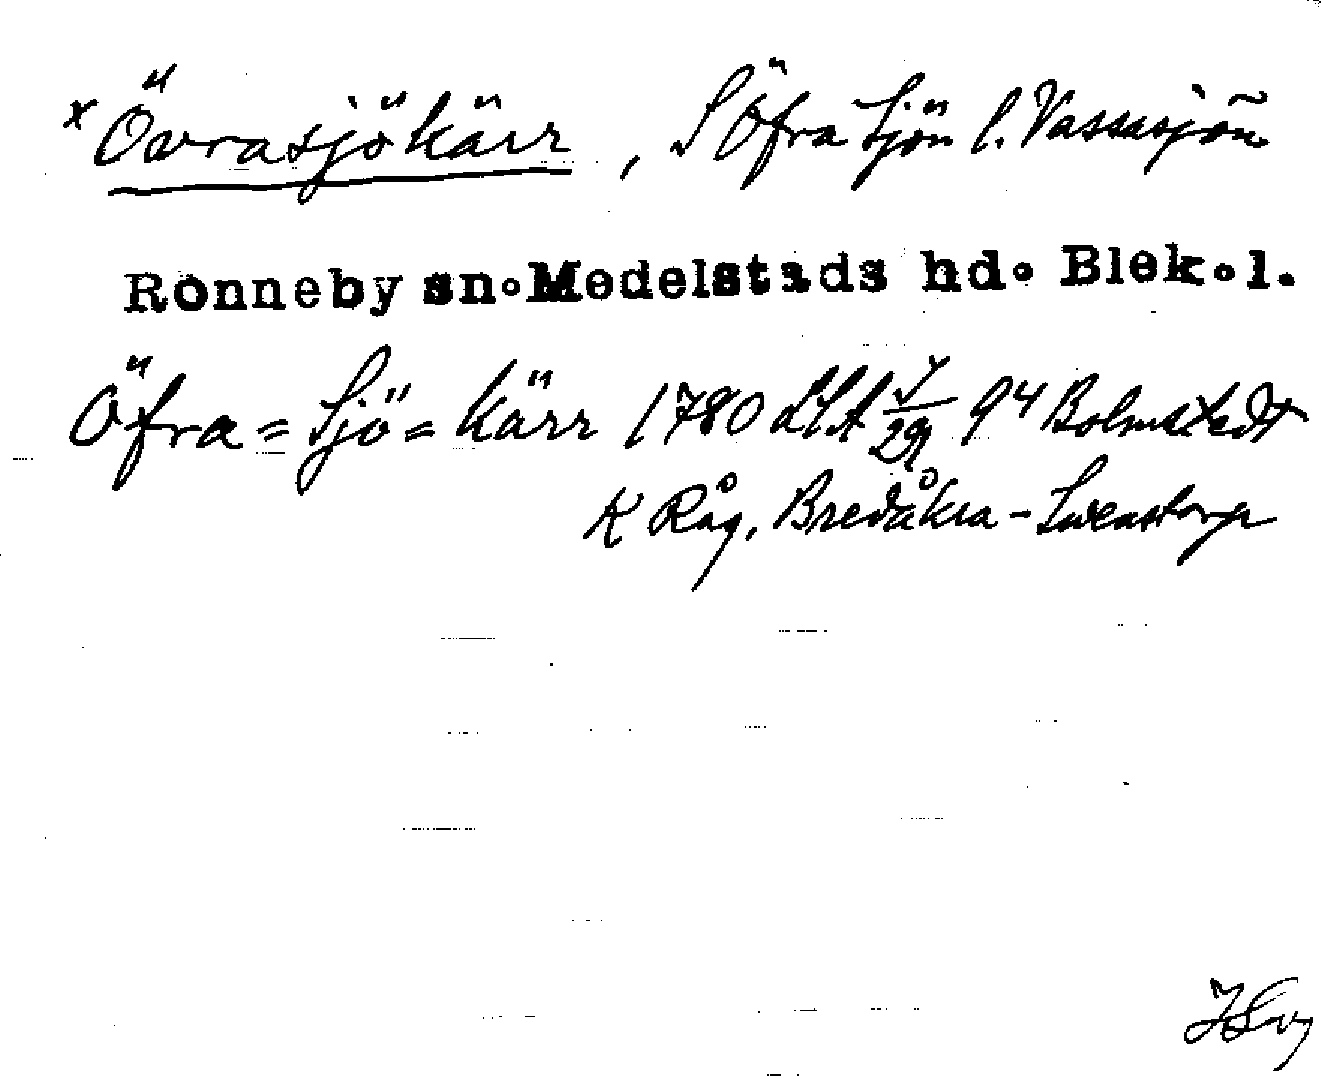 x Övrasjökärr, S Öfra Sjön l. Vassasjön
Ronneby sn. Medelstads hd. Blek. l.
Öfra = Sjö = Kärr 1780 LSA 94 Bolmstedt
K Råg, Bredåkra - Svenstorp